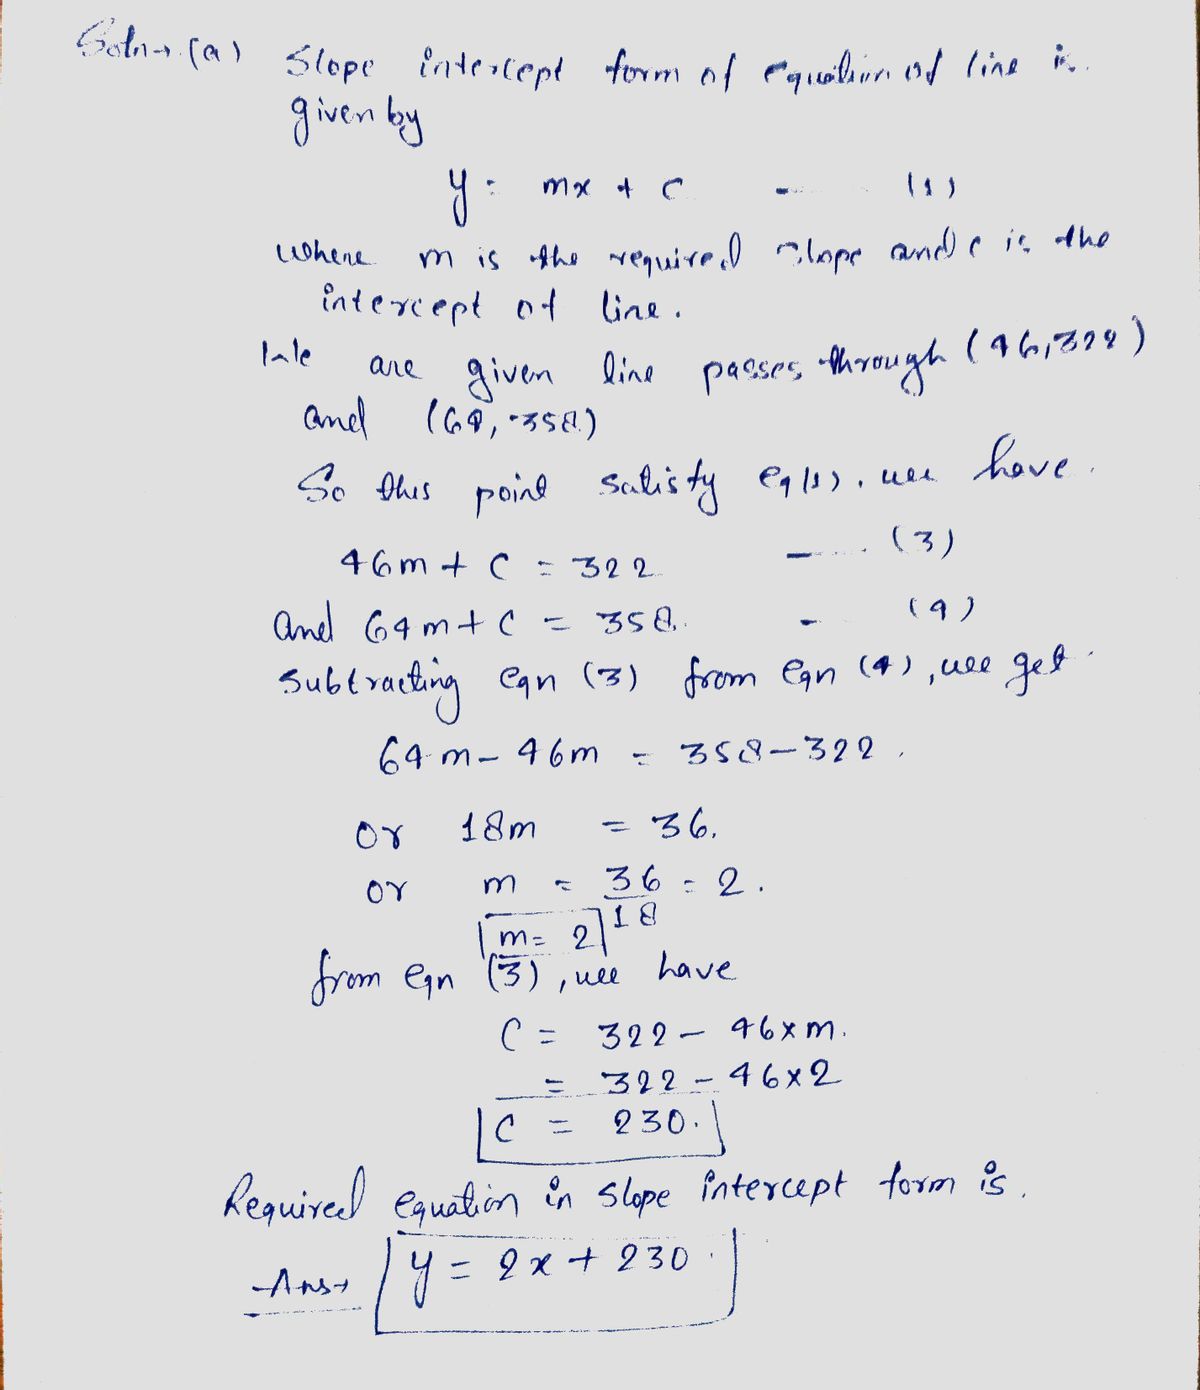 Soln→ (a) Slope intercept form of equation of line is.
given by
y = mx + c --- (1)
where m is the required slope and c is the
intercept of line.
We are given line passes through (46,322)
and (64, 358)
So this point satisfy eq(1), we have.
46m + C = 322 --- (3)
and 64m + C = 358. - (4)
Subtracting eqn (3) from eqn (4), we get.
64m - 46m = 358 - 322.
or 18m = 36.
or m = 36/18 = 2.
m = 2
from eqn (3), we have
C = 322 - 46×m.
= 322 - 46×2
C = 230.
Required equation in slope intercept form is.
Ans→ y = 2x + 230.